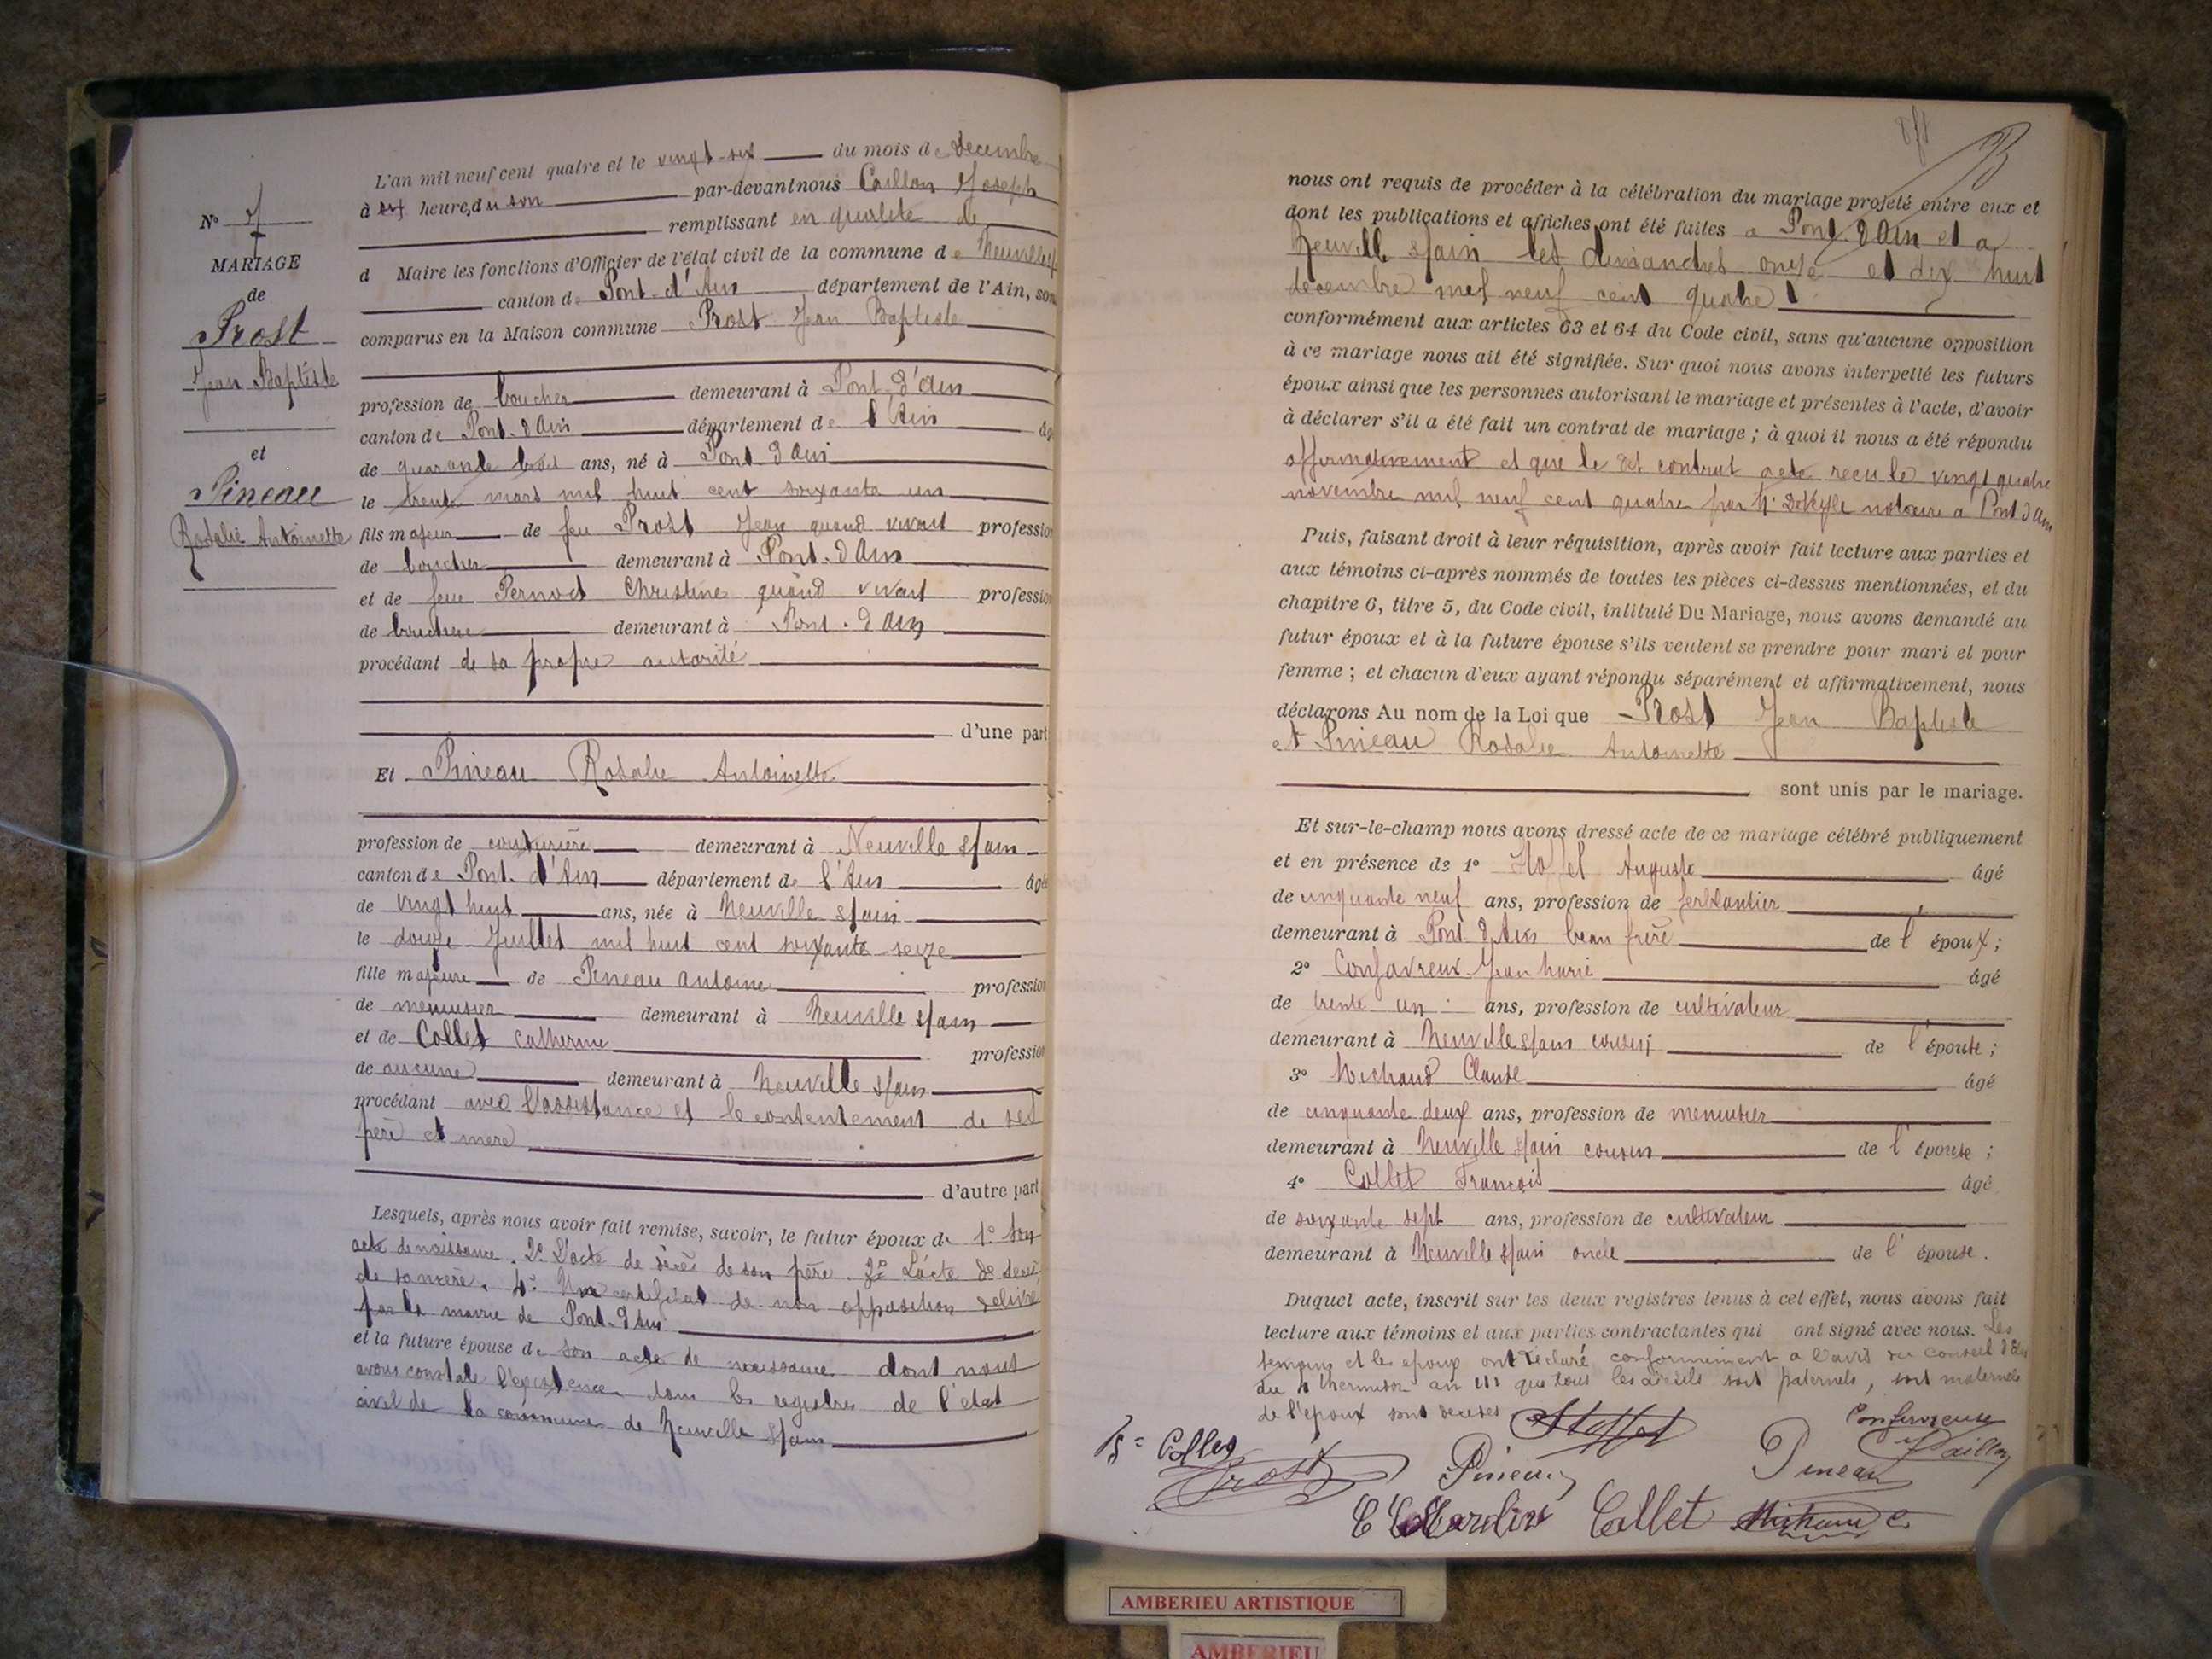 L'an mil neuf cent quatre et le vingt-six du mois de decembre
à six heure, du soir par-devant nous Caillon Joseph
remplissant en qualité de
d Maire les fonctions d'Officier de l'état civil de la commune de Neuville s/
canton de Pont-d'Ain département de l'Ain, son
comparus en la Maison commune Prost Jean Baptiste
N° 7
MARIAGE
de
Prost
Jean Baptiste
et
Pineau
Rosalie Antoinette
profession de boucher demeurant à Pont-d'Ain
canton de Pont-d'Ain département de l'Ain âg
de quarante trois ans, né à Pont d'Ain
le trente mars mil huit cent soixante un
fils majeur de feu Prost Jean quand vivait profession
de boucher demeurant à Pont-d'Ain
et de feue Pernod Christine quand vivait profession
de bouchere demeurant à Pont-d'Ain
procédant de sa propre autorité
d'une part
Et Pineau Rosalie Antoinette
profession de couturière demeurant à Neuville s/ain
canton de Pont-d'Ain département de l'Ain âgé
de vingt huit ans, née à Neuville s/ain
le douze Juillet mil huit cent soixante seize
fille majeure de Pineau Antoine profession
de menuisier demeurant à Neuville s/ain
et de Collet Catherine profession
de aucune demeurant à Neuville s/ain
procédant avec l'assistance et le consentement de ses
père et mère
d'autre part
Lesquels, après nous avoir fait remise, savoir, le futur époux de 1° son
acte de naissance. 2° L'acte de décès de son père. 3° L'acte de decès
de sa mère. 4° Un certificat de non opposition delivré
par la mairie de Pont-d'Ain
et la future épouse de son acte de naissance dont nous
avons constaté l'existence dans les registres de l'état
civil de la commune de Neuville s/ain
nous ont requis de procéder à la célébration du mariage projeté entre eux et
dont les publications et affiches ont été faites a Pont-d'Ain et a
Neuville s/ain les dimanches onze et dix huit
decembre mil neuf cent quatre
conformément aux articles 63 et 64 du Code civil, sans qu'aucune opposition
à ce mariage nous ait été signifiée. Sur quoi nous avons interpellé les futurs
époux ainsi que les personnes autorisant le mariage et présentes à l'acte, d'avoir
à déclarer s'il a été fait un contrat de mariage ; à quoi il nous a été répondu
affirmativement et que le dit contrat acte recu le vingt quatre
novembre mil neuf cent quatre par notaire a Pont d'Ain
Puis, faisant droit à leur réquisition, après avoir fait lecture aux parties et
aux témoins ci-après nommés de toutes les pièces ci-dessus mentionnées, et du
chapitre 6, titre 5, du Code civil, intitulé Du Mariage, nous avons demandé au
futur époux et à la future épouse s'ils veulent se prendre pour mari et pour
femme ; et chacun d'eux ayant répondu séparément et affirmativement, nous
déclarons Au nom de la Loi que Prost Jean Baptiste
et Pineau Rosalie Antoinette
sont unis par le mariage.
Et sur-le-champ nous avons dressé acte de ce mariage célébré publiquement
et en présence de 1° Stoffel Auguste âgé
de cinquante neuf ans, profession de ferblantier
demeurant à Pont d'Ain beau frère de l'époux ;
2° Confavreux Jean Marie âgé
de trente un ans, profession de cultivateur
demeurant à Neuville s/ain cousin de l'épouse ;
3° Michaud Claude âgé
de cinquante deux ans, profession de menuisier
demeurant à Neuville s/ain cousin de l'épouse ;
4° Collet François âgé
de soixante sept ans, profession de cultivateur
demeurant à Neuville s/ain oncle de l'épouse.
Duquel acte, inscrit sur les deux registres tenus à cet effet, nous avons fait
lecture aux témoins et aux parties contractantes qui ont signé avec nous. Les
temoins et les epoux ont déclaré conformement a l'avis du Conseil d'Etat
du 4 thermidor an III que tous les aieuls soit paternels, soit maternels
de l'epoux sont decedés
Stoffel
Confavreux
Caillon
Collet
Prost
Pineau
Pineau
Collet
Michaud C
AMBERIEU ARTISTIQUE
AMBERIEU